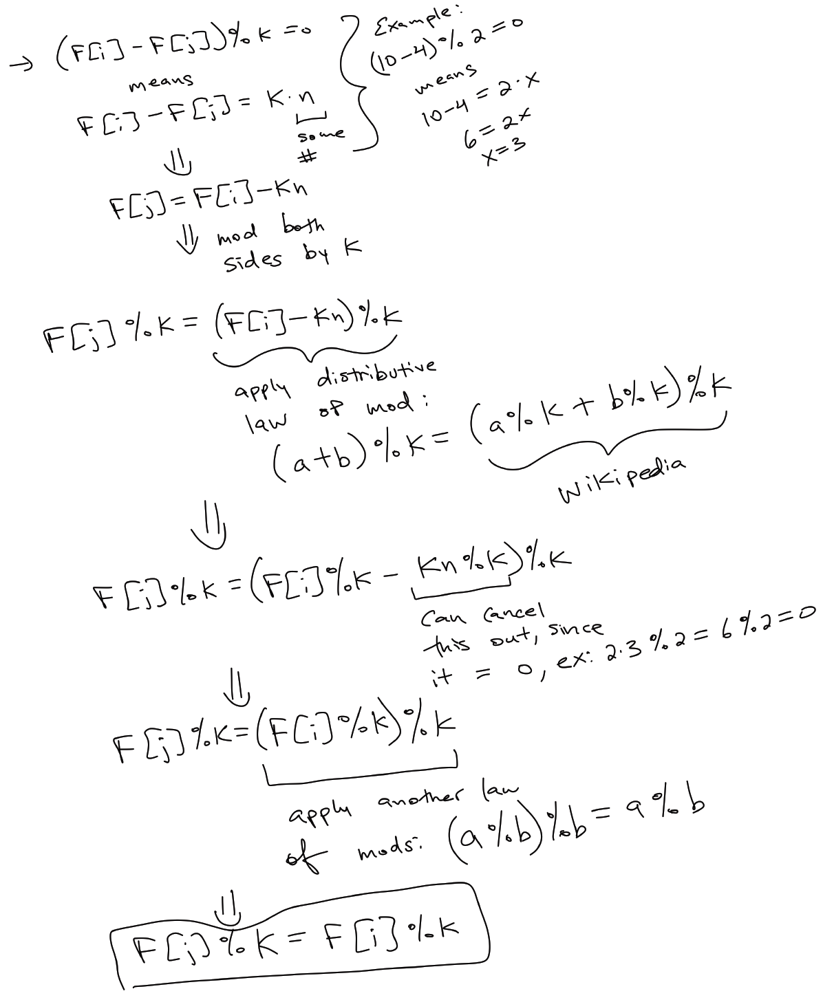 → (F[i] - F[j])%K = 0
means
F[i] - F[j] = K·n
some
#
Example:
(10-4)%2=0
means
10-4 = 2·x
6=2x
x=3
⇓
F[j] = F[i] - Kn
⇓ mod both
sides by K
F[j]%K = (F[i] - Kn)%K
apply distributive
law of mod:
(a+b)%K = (a%K + b%K)%K
Wikipedia
⇓
F[j]%K = (F[i]%K - Kn%K)%K
Can cancel
this out, since
it = 0, ex: 2·3%2 = 6%2=0
⇓
F[j]%K = (F[i]%K)%K
apply another law
of mods: (a%b)%b = a%b
⇓
F[j]%K = F[i]%K